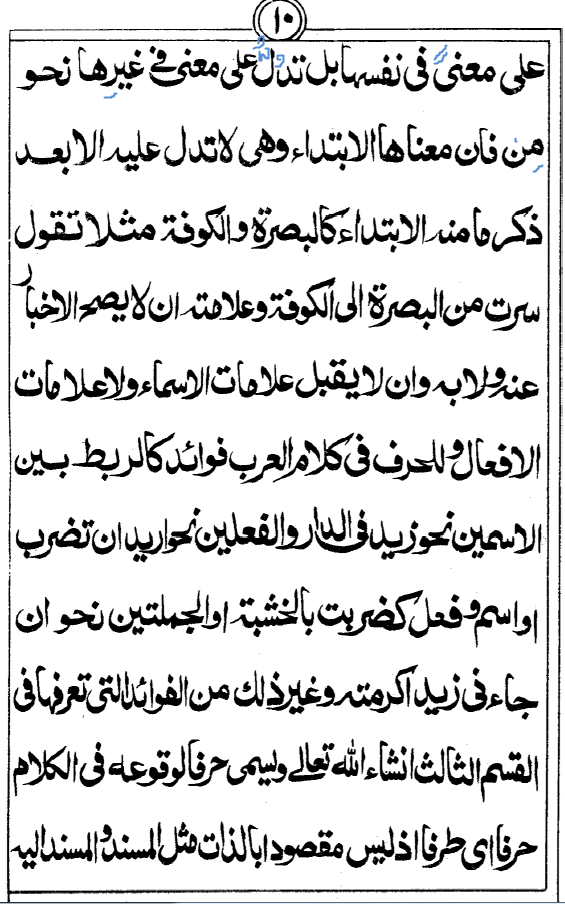 ١٠
على معنى فى نفسها بل تدل على معنى فے غيرها نحو
من فان معناها الابتداء وهى لا تدل عليه الا بعد
ذكر ما منه الابتداء كالبصرة والكوفة مثلا تقول
سرت من البصرة الى الكوفة وعلامته ان لا يصح الاخبار
عنه ولا به وان لا يقبل علامات الاسماء ولا علامات
الافعال وللحرف فى كلام العرب فوائد كالربط بين
الاسمين نحو زيد فى الدار والفعلين نحو اريد ان تضرب
او اسم وفعل كضربت بالخشبة او الجملتين نحو ان
جاء فى زيد اكرمته وغير ذلك من الفوائد التى تعرفها فى
القسم الثالث انشاء الله تعالے ويسمى حرفا لوقوعه فى الكلام
حرفا اى طرفا اذ ليس مقصودا بالذات مثل المسند والمسند اليه